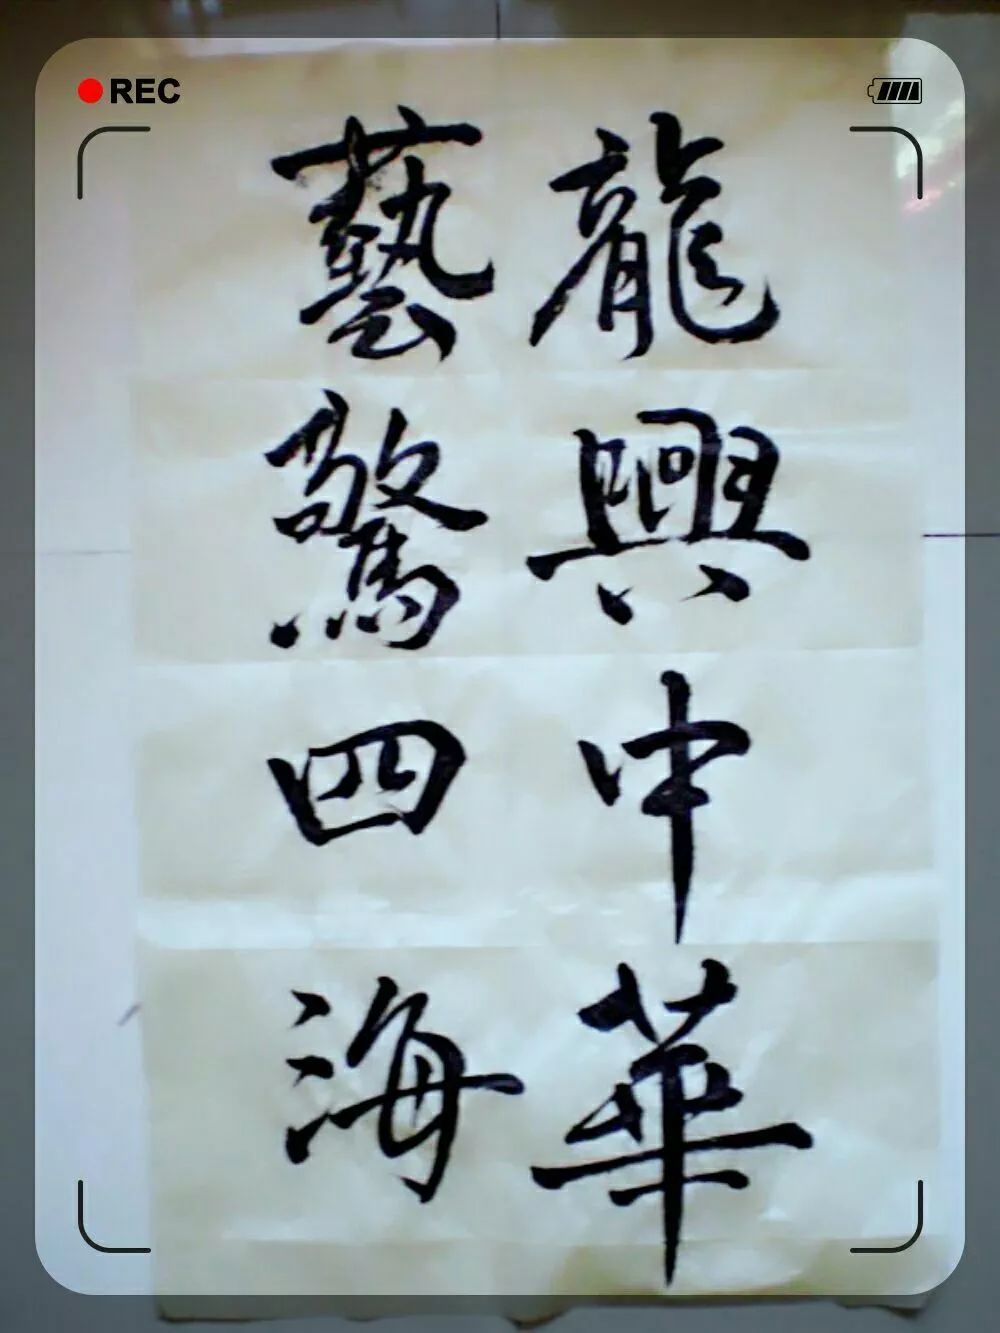 REC
龍興中華
藝驚四海